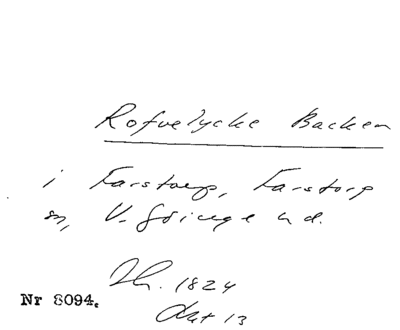 Rofvelycke Backen
i Farstorp, Farstorp
sn, V. Göinge hd.
Th. 1824
Akt 13
Nr 8094.